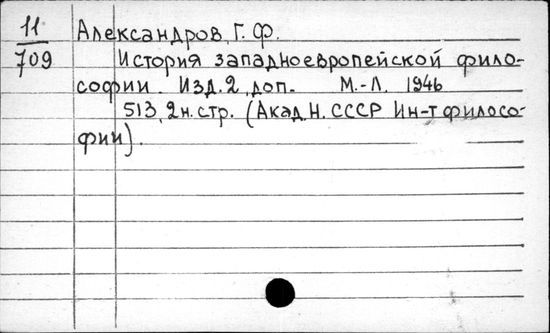 11
709
Александров, Г. Ф.
История западноевропейской фило-
софии. Изд. 2, доп. М.-Л. 1946
513, 2 н. стр. (Акад. Н. СССР Ин-т филосо-
фии).